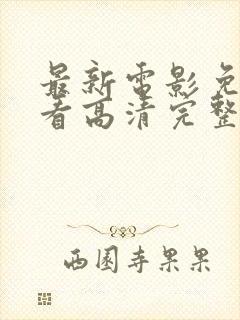 最新电影免
看高清完整
西园寺果果